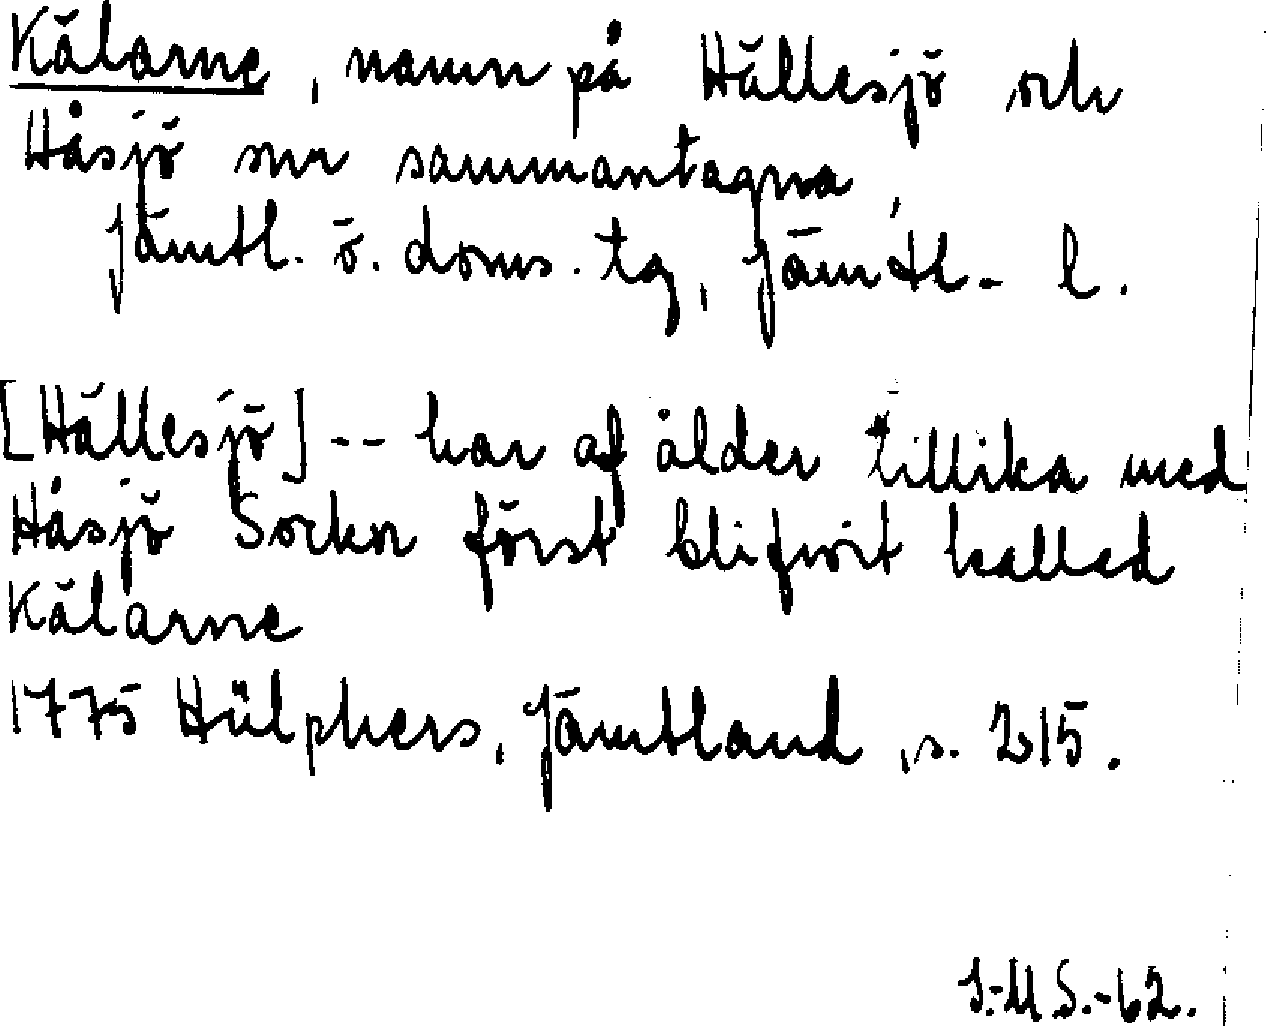 Kälarne, namn på Hällesjö och
Håsjö snr sammantagna,
Jämtl. ö. doms. tg, Jämtl. l.
[Hällesjö] -- har af ålder tillika med
Håsjö Sockn först blifwit kallad
Kälarne
1775 Hülphers, Jämtland, s. 215.
I.-M S.-62.